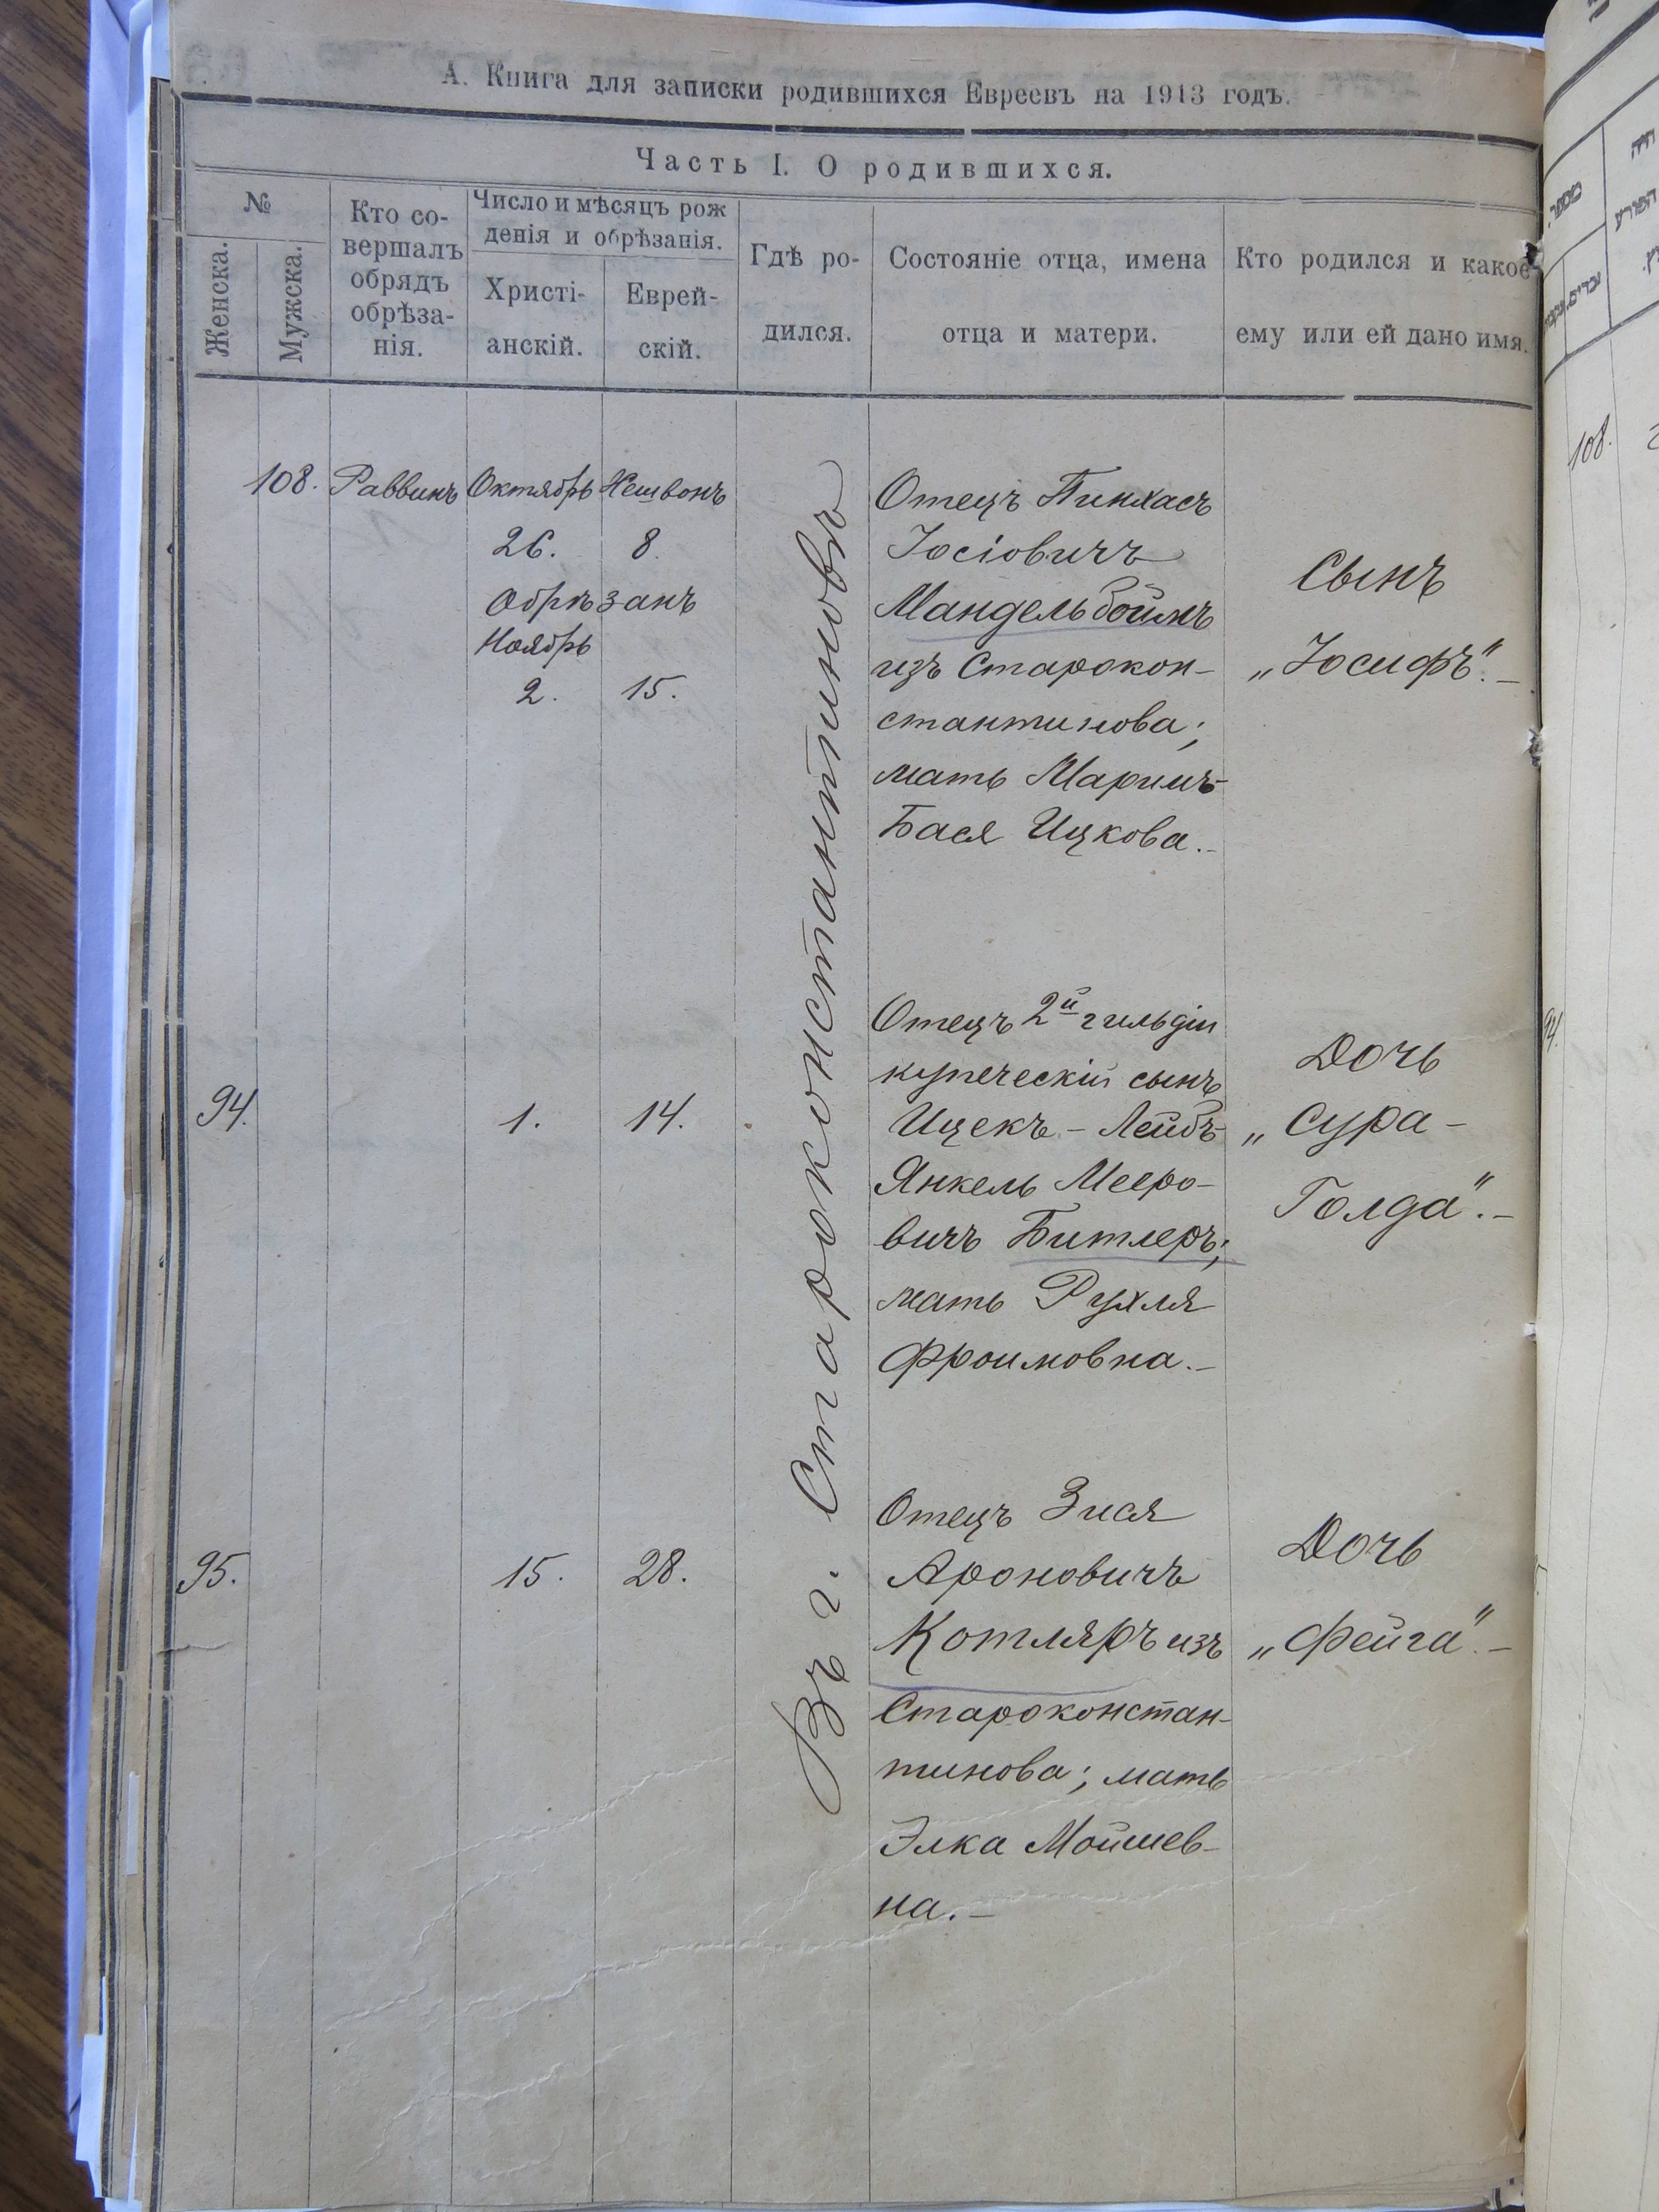 А. Книга для записки родившихся Евреевъ на 1913 годъ.
Часть I. О родившихся.
№
Женска.
Мужска.
Кто со-
вершалъ
обрядъ
обрѣза-
нія.
Число и мѣсяцъ рож
денія и обрѣзанія.
Христі-
анскій.
Еврей-
скій.
Гдѣ ро-
дился.
Состояніе отца, имена
отца и матери.
Кто родился и какое
ему или ей дано имя.
Въ г. Староконстантиновѣ
108. Раввинъ Октябрь Хешвонъ
26. 8.
Обрѣзанъ
Ноябрь
2. 15.
Отецъ Пинхасъ
Іосіовичъ
Мандельбоймъ
изъ Старокон-
стантинова;
мать Маримъ-
Бася Ицкова.-
Сынъ
„Іосифъ".-
94. 1. 14.
Отецъ 2й гильдіи
купеческій сынъ
Ицекъ-Лейбъ-
Янкель Мееро-
вичъ Битлеръ;
мать Рухля
Фроимовна.-
Дочь
„Сура-
Голда".-
95. 15. 28.
Отецъ Зися
Ароновичъ
Котляръ изъ
Староконстан-
тинова; мать
Элка Мойшев-
на.-
Дочь
„Фейга".-
108.
94.